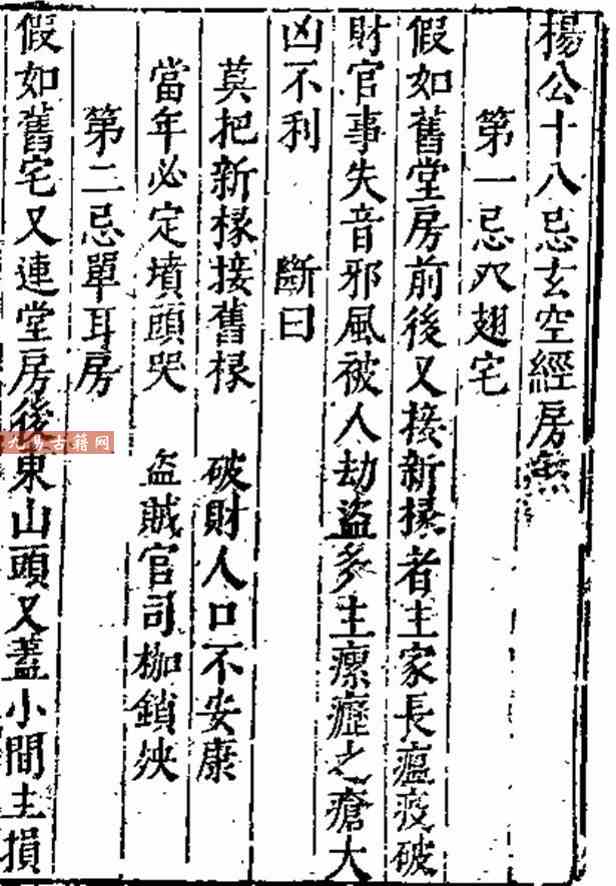 楊公十八忌玄空經房
第一忌 翅宅
假如舊堂房前後又接新椽者主家長瘟疫破
財官事失音邪風被人劫盜多主瘰癧之瘡大
凶不利 斷曰
莫把新椽接舊椽 破財人口不安康
當年必定墳頭哭 盜賊官司枷鎖殃
第二忌單耳房
假如舊宅又連堂房後東山頭又蓋小間主損
九易古籍网